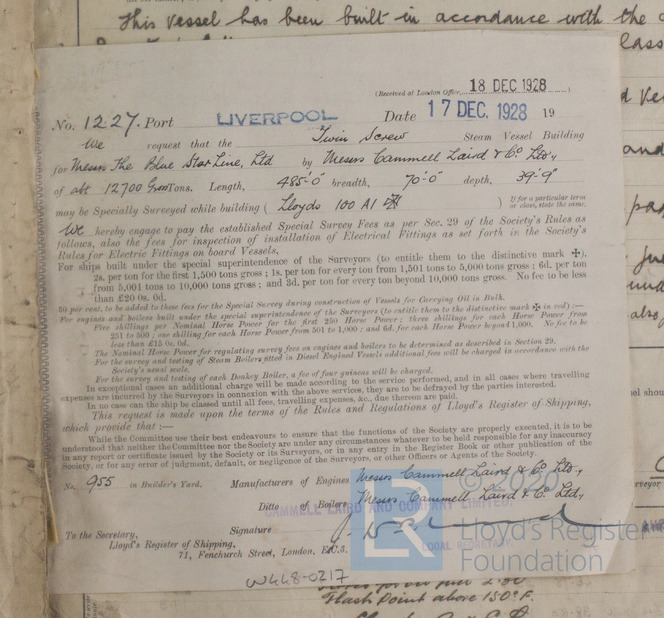 This vessel has been built in accordance with the
(Received at London Office 18 DEC 1928 )
No. 1227. Port LIVERPOOL Date 17 DEC. 1928 19
We request that the Twin Screw Steam Vessel Building
for Messrs The Blue Star Line, Ltd by Messrs Cammell Laird & Co. Ltd.,
of abt 12700 Gross Tons. Length, 485'·0" breadth, 70'·0" depth, 39'·9"
may be Specially Surveyed while building ( Lloyds 100 A1 ✠ ) If for a particular term or class, state the same.
We hereby engage to pay the established Special Survey Fees as per Sec. 29 of the Society's Rules as
follows, also the fees for inspection of installation of Electrical Fittings as set forth in the Society's
Rules for Electric Fittings on board Vessels.
For ships built under the special superintendence of the Surveyors (to entitle them to the distinctive mark ✠).
2s. per ton for the first 1,500 tons gross; 1s. per ton for every ton from 1,501 to 5,000 tons gross; 6d. per ton
from 5,001 tons to 10,000 tons gross; and 3d. per ton for every ton beyond 10,000 tons gross. No fee to be less
than £20 0s. 0d.
50 per cent. to be added to these fees for the Special Survey during construction of Vessels for Carrying Oil in Bulk.
For engines and boilers built under the special superintendence of the Surveyors (to entitle them to the distinctive mark ✠ in red) :—
Five shillings per Nominal Horse Power for the first 250 Horse Power; three shillings for each Horse Power from
251 to 500; one shilling for each Horse Power from 501 to 1,000; and 6d. for each Horse Power beyond 1,000. No fee to be
less than £15 0s. 0d.
The Nominal Horse Power for regulating survey fees on engines and boilers to be determined as described in Section 29.
For the survey and testing of Steam Boilers fitted in Diesel Engined Vessels additional fees will be charged in accordance with the
Society's usual scale.
For the survey and testing of each Donkey Boiler, a fee of four guineas will be charged.
In exceptional cases an additional charge will be made according to the service performed, and in all cases where travelling
expenses are incurred by the Surveyors in connexion with the above services, they are to be defrayed by the parties interested.
In no case can the ship be classed until all fees, travelling expenses, &c., due thereon are paid.
This request is made upon the terms of the Rules and Regulations of Lloyd's Register of Shipping,
which provide that :—
While the Committee use their best endeavours to ensure that the functions of the Society are properly executed, it is to be
understood that neither the Committee nor the Society are under any circumstances whatever to be held responsible for any inaccuracy
in any report or certificate issued by the Society or its Surveyors, or in any entry in the Register Book or other publication of the
Society, or for any error of judgment, default, or negligence of the Surveyors, or other Officers or Agents of the Society.
No. 955 in Builder's Yard. Manufacturers of Engines Messrs Cammell Laird & Co. Ltd.,
Ditto of Boilers Messrs Cammell Laird & Co. Ltd.,
CAMMELL LAIRD AND COMPANY LIMITED.
© 2020
LR Lloyd's Register
Foundation
To the Secretary, Signature
LOCAL SECRETARY
Lloyd's Register of Shipping,
71, Fenchurch Street, London, E.C.3.
W448-0217
Flash Point above 150°F.